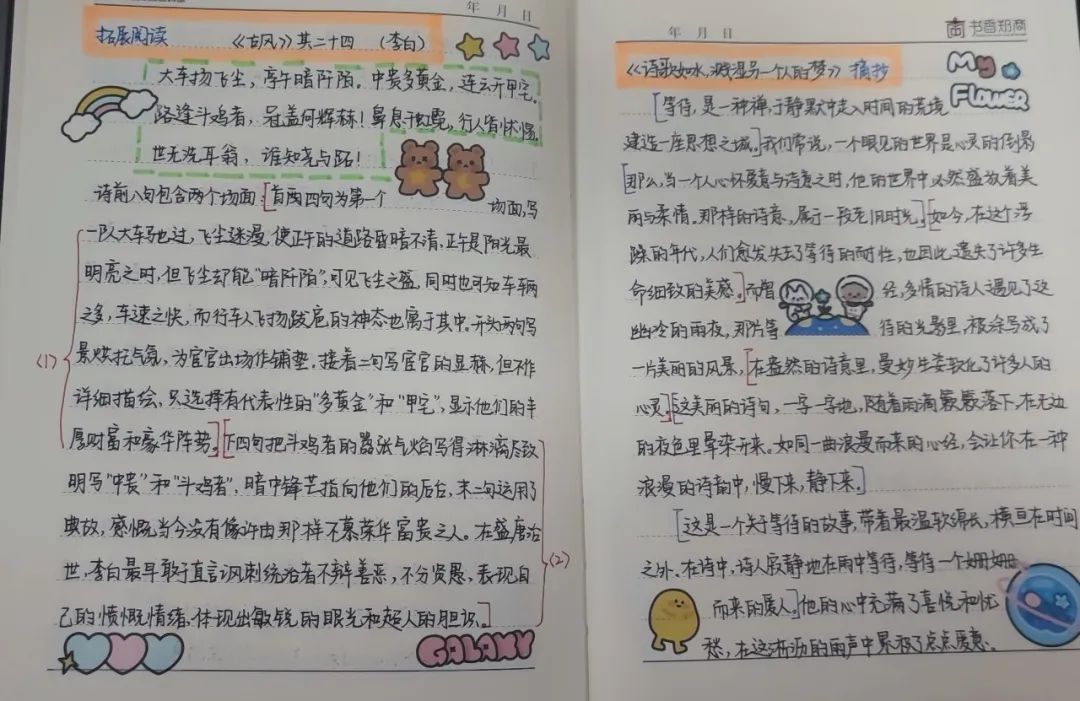 年 月 日
拓展阅读 《古风》其二十四 (李白)
大车扬飞尘，亭午暗阡陌。中贵多黄金，连云开甲宅。
路逢斗鸡者，冠盖何辉赫！鼻息干虹霓，行人皆怵惕。
世无洗耳翁，谁知尧与跖！
诗前八句包含两个场面：[首两四句为第一个场面，写
一队大车驰过，飞尘迷漫，使正午的道路昏暗不清，正午是阳光最
明亮之时，但飞尘却能“暗阡陌”，可见飞尘之盛，同时也可知车辆
之多，车速之快，而行车人飞扬跋扈的神态也寓于其中。开头两句写
(1) 景烘托气氛，为宦官出场作铺垫。接着二句写宦官的显赫，但不作
详细描绘，只选择有代表性的“多黄金”和“甲宅”，显示他们的丰
厚财富和豪华阵势。][下四句把斗鸡者的嚣张气焰写得淋漓尽致
明写“中贵”和“斗鸡者”，暗中锋芒指向他们的后台，末二句运用了
典故，感慨当今没有像许由那样不慕荣华富贵之人。在盛唐治
世，李白最早敢于直言讽刺统治者不辨善恶，不分贤愚，表现自 (2)
己的愤慨情绪，体现出敏锐的眼光和超人的胆识。]
GALAXY
年 月 日
书香郑商
《诗歌如水，溅湿另一个人的梦》摘抄
My FLOWER
[等待，是一种禅，于静默中走入时间的荒境
建造一座思想之城。]我们常说，一个眼见的世界是心灵的传影
[那么，当一个人心怀爱意与诗意之时，他的世界中必然盛放着美
丽与柔情。那样的诗意，属于一段老旧时光。][如今，在这个浮
躁的年代，人们愈发失去了等待的耐性，也因此，遗失了许多生
命细致的美感。]而曾经，多情的诗人遇见了这
幽冷的雨夜，那片等待的光影里，被涂写成了
一片美丽的风景，[在盎然的诗意里，曼妙生姿软化了许多人的
心灵。][这美丽的诗句，一字一字地，随着雨滴簌簌落下，在无边
的夜色里晕染开来。如同一曲浪漫而来的心经，会让你在一种
浪漫的诗韵中，慢下来，静下来。]
[这是一个关于等待的故事，带着最温软绵长，横亘在时间
之外。在诗中，诗人寂静地在雨中等待，等待一个姗姗
而来的爱人。]他的心中充满了喜悦和忧
愁，在这淅沥的雨声中累积了点点爱意。